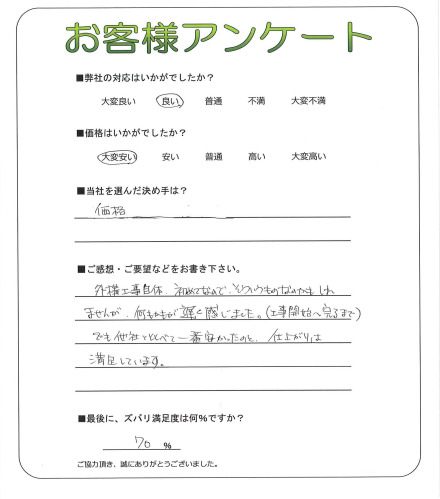 お客様アンケート
■弊社の対応はいかがでしたか?
大変良い 良い 普通 不満 大変不満
■価格はいかがでしたか?
大変安い 安い 普通 高い 大変高い
■当社を選んだ決め手は?
価格
■ご感想・ご要望などをお書き下さい。
外構工事自体、初めてなんで、そういうものなのかもしれ
ませんが、何もかもが遅く感じました。(工事開始〜完了まで)
でも他社とくらべて一番安かったのと、仕上がりは
満足しています。
■最後に、ズバリ満足度は何%ですか?
70 %
ご協力頂き、誠にありがとうございました。